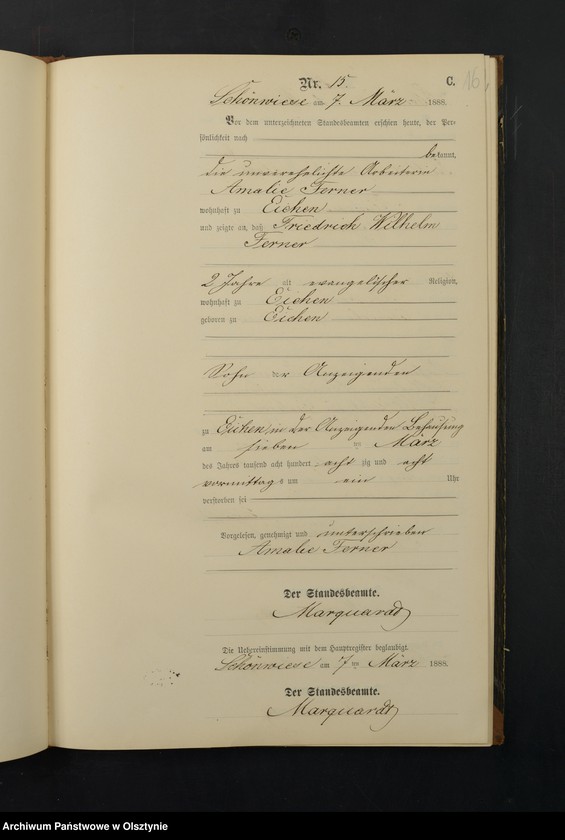 Nr. 15.
C.
16,
Schönwiese am 7. März 1888.
Vor dem unterzeichneten Standesbeamten erschien heute, der Per-
sönlichkeit nach
bekannt,
die unverehelichte Arbeiterin
Amalie Ferner
wohnhaft zu Eichen
und zeigte an, daß Friedrich Wilhelm
Ferner
2 Jahre alt evangelischer Religion,
wohnhaft zu Eichen
geboren zu Eichen
Sohn der Anzeigenden
zu Eichen, in der Anzeigenden Behausung
am sieben ten März
des Jahres tausend acht hundert acht zig und acht
vormittags um ein Uhr
verstorben sei
Vorgelesen, genehmigt und unterschrieben
Amalie Ferner
Der Standesbeamte.
Marquardt
Die Uebereinstimmung mit dem Hauptregister beglaubigt.
Schönwiese am 7 ten März 1888.
Der Standesbeamte.
Marquardt
Archiwum Państwowe w Olsztynie